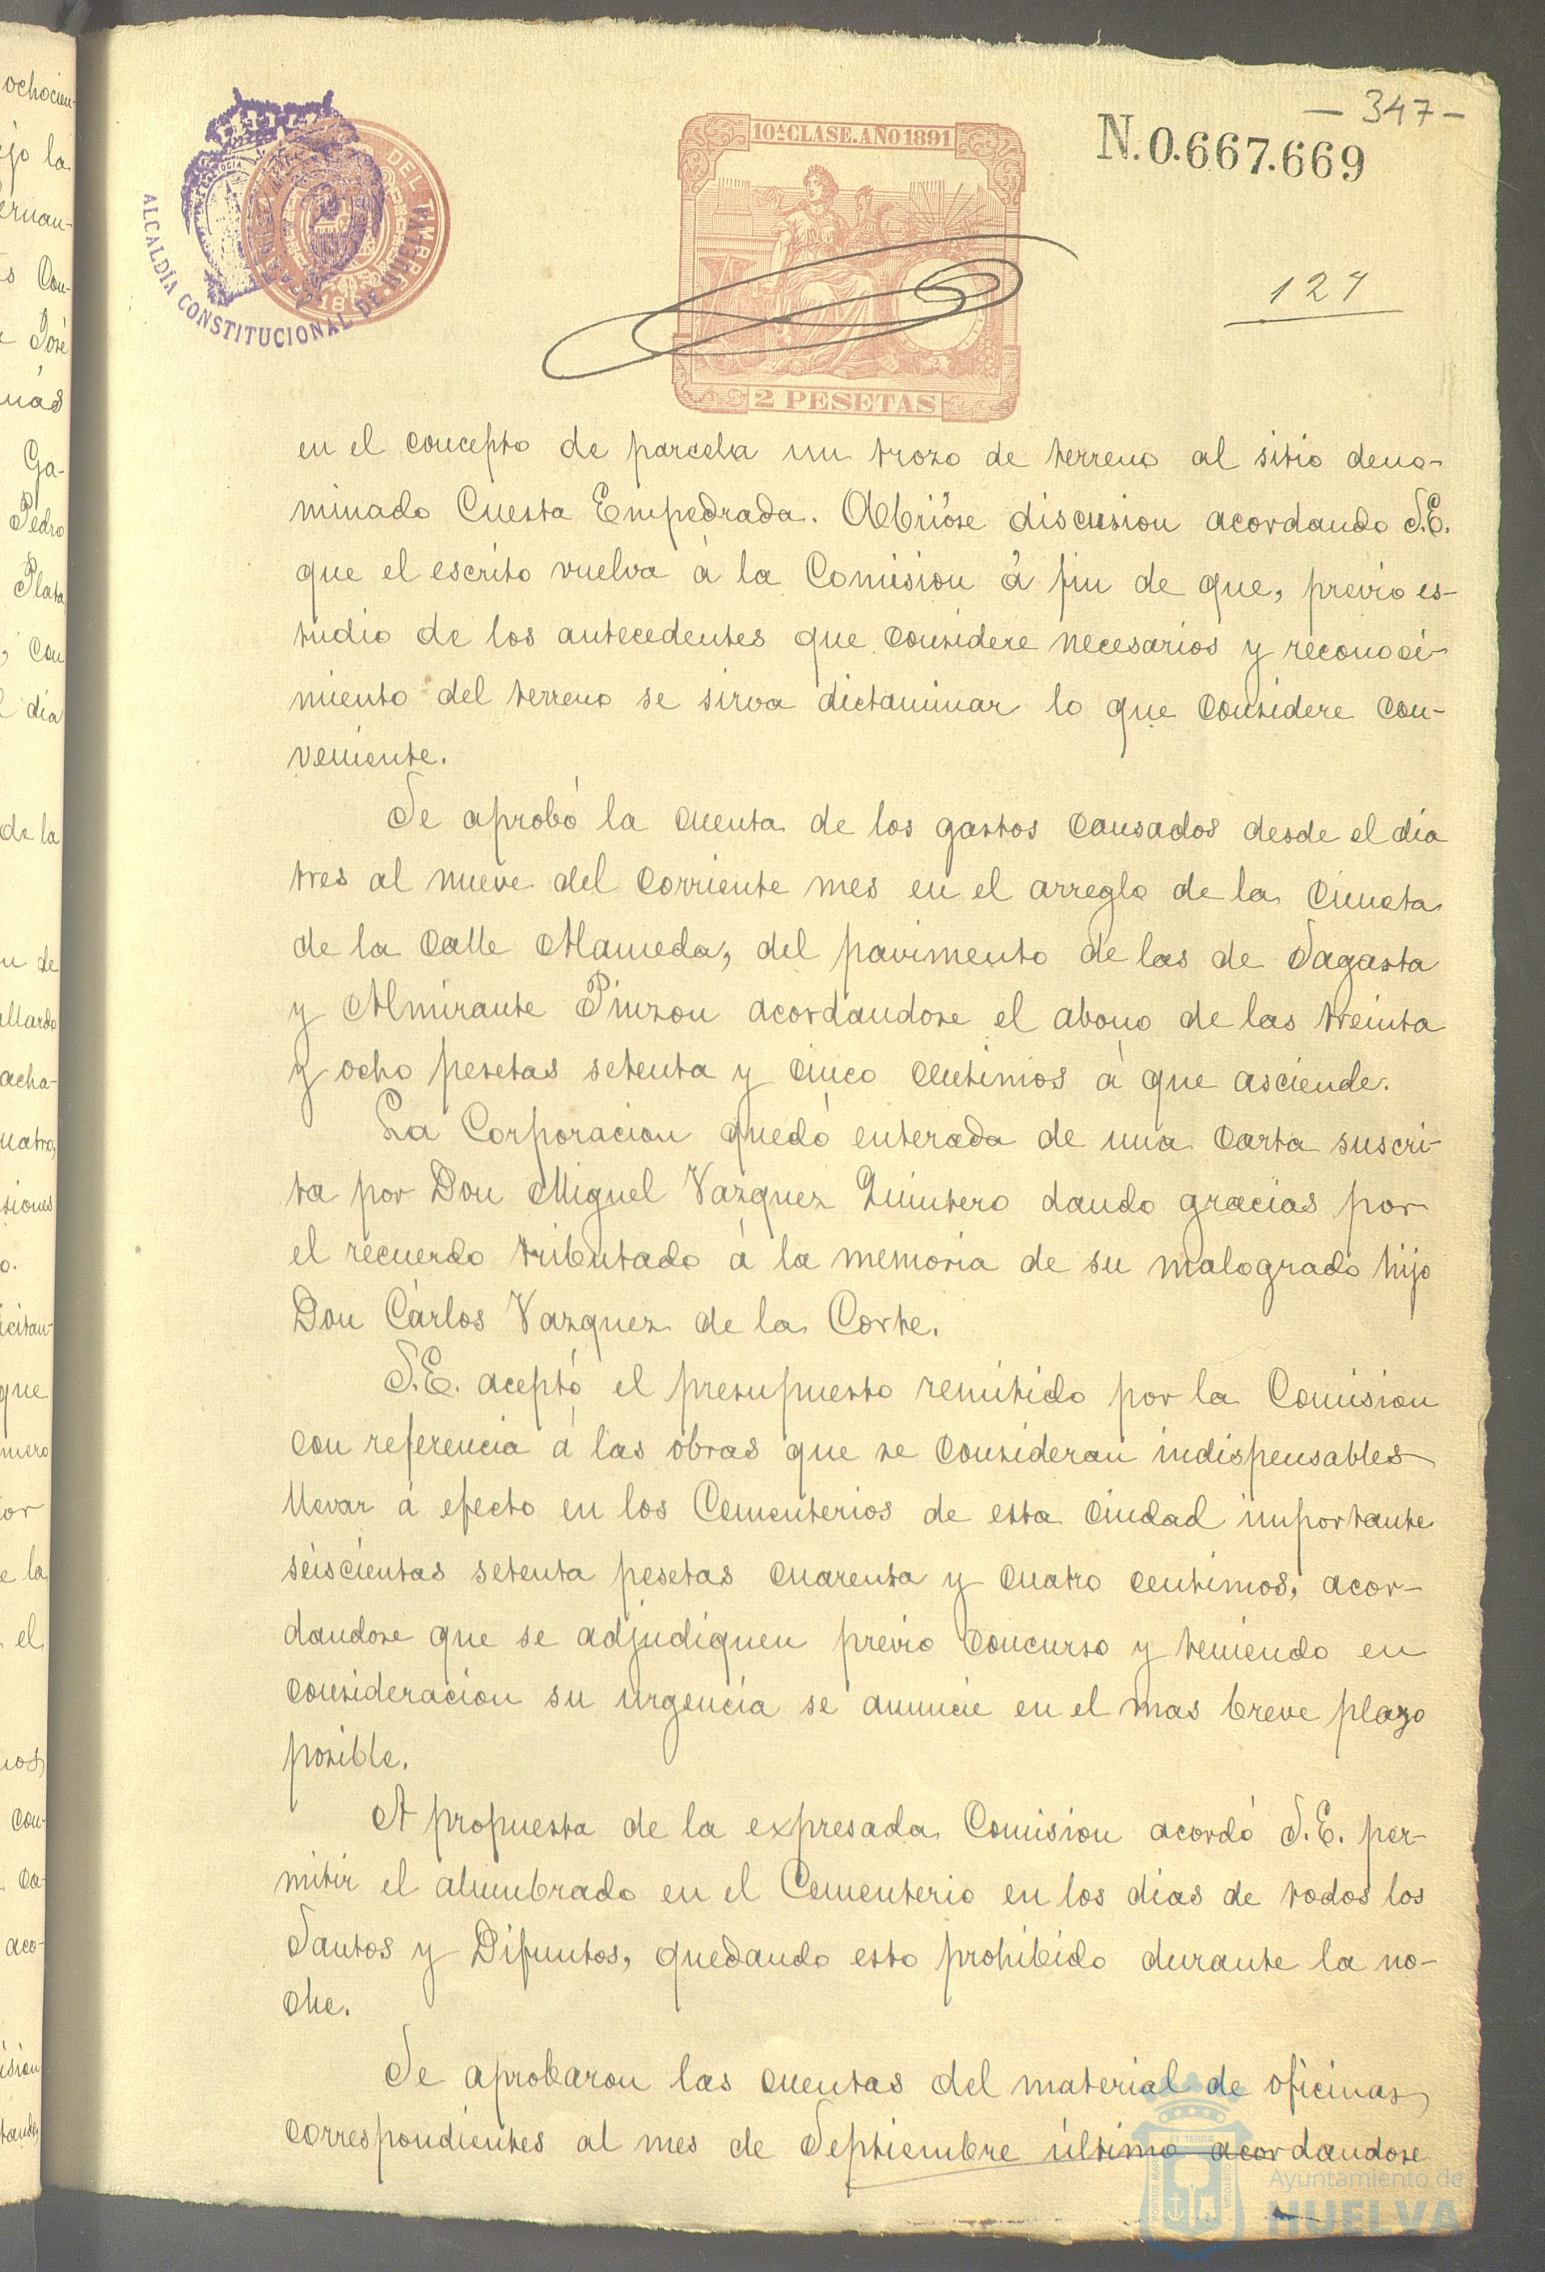 — 347 —
10ª CLASE. AÑO 1891
N.0.667.669
DEL TIMBRE
ALCALDÍA CONSTITUCIONAL DE HUELVA
2 PESETAS
en el concepto de parcela un trozo de terreno al sitio deno-
minado Cuesta Empedrada. Abrióse discusion acordando S.E.
que el escrito vuelva á la Comision á fin de que, previo es-
tudio de los antecedentes que considere necesarios y reconoci-
miento del terreno se sirva dictaminar lo que considere con-
veniente.
Se aprobó la cuenta de los gastos causados desde el dia
tres al nueve del corriente mes en el arreglo de la cuneta
de la calle Alameda, del pavimento de las de Sagasta
y Almirante Pinzon acordandose el abono de las treinta
y ocho pesetas setenta y cinco centimos á que asciende.
La Corporacion quedó enterada de una carta suscri-
ta por Don Miguel Vazquez Quintero dando gracias por
el recuerdo tributado á la memoria de su malogrado hijo
Don Cárlos Vazquez de la Corte.
S.E. aceptó el presupuesto remitido por la Comision
con referencia á las obras que se consideran indispensables
llevar á efecto en los Cementerios de esta ciudad importante
seiscientas setenta pesetas cuarenta y cuatro centimos, acor-
dandose que se adjudiquen previo concurso y teniendo en
consideracion su urgencia se anuncie en el mas breve plazo
posible.
A propuesta de la expresada Comision acordó S.E. per-
mitir el alumbrado en el Cementerio en los dias de todos los
Santos y Difuntos, quedando esto prohibido durante la no-
che.
Se aprobaron las cuentas del material de oficinas
correspondientes al mes de Septiembre último acordandose
Ayuntamiento de
HUELVA